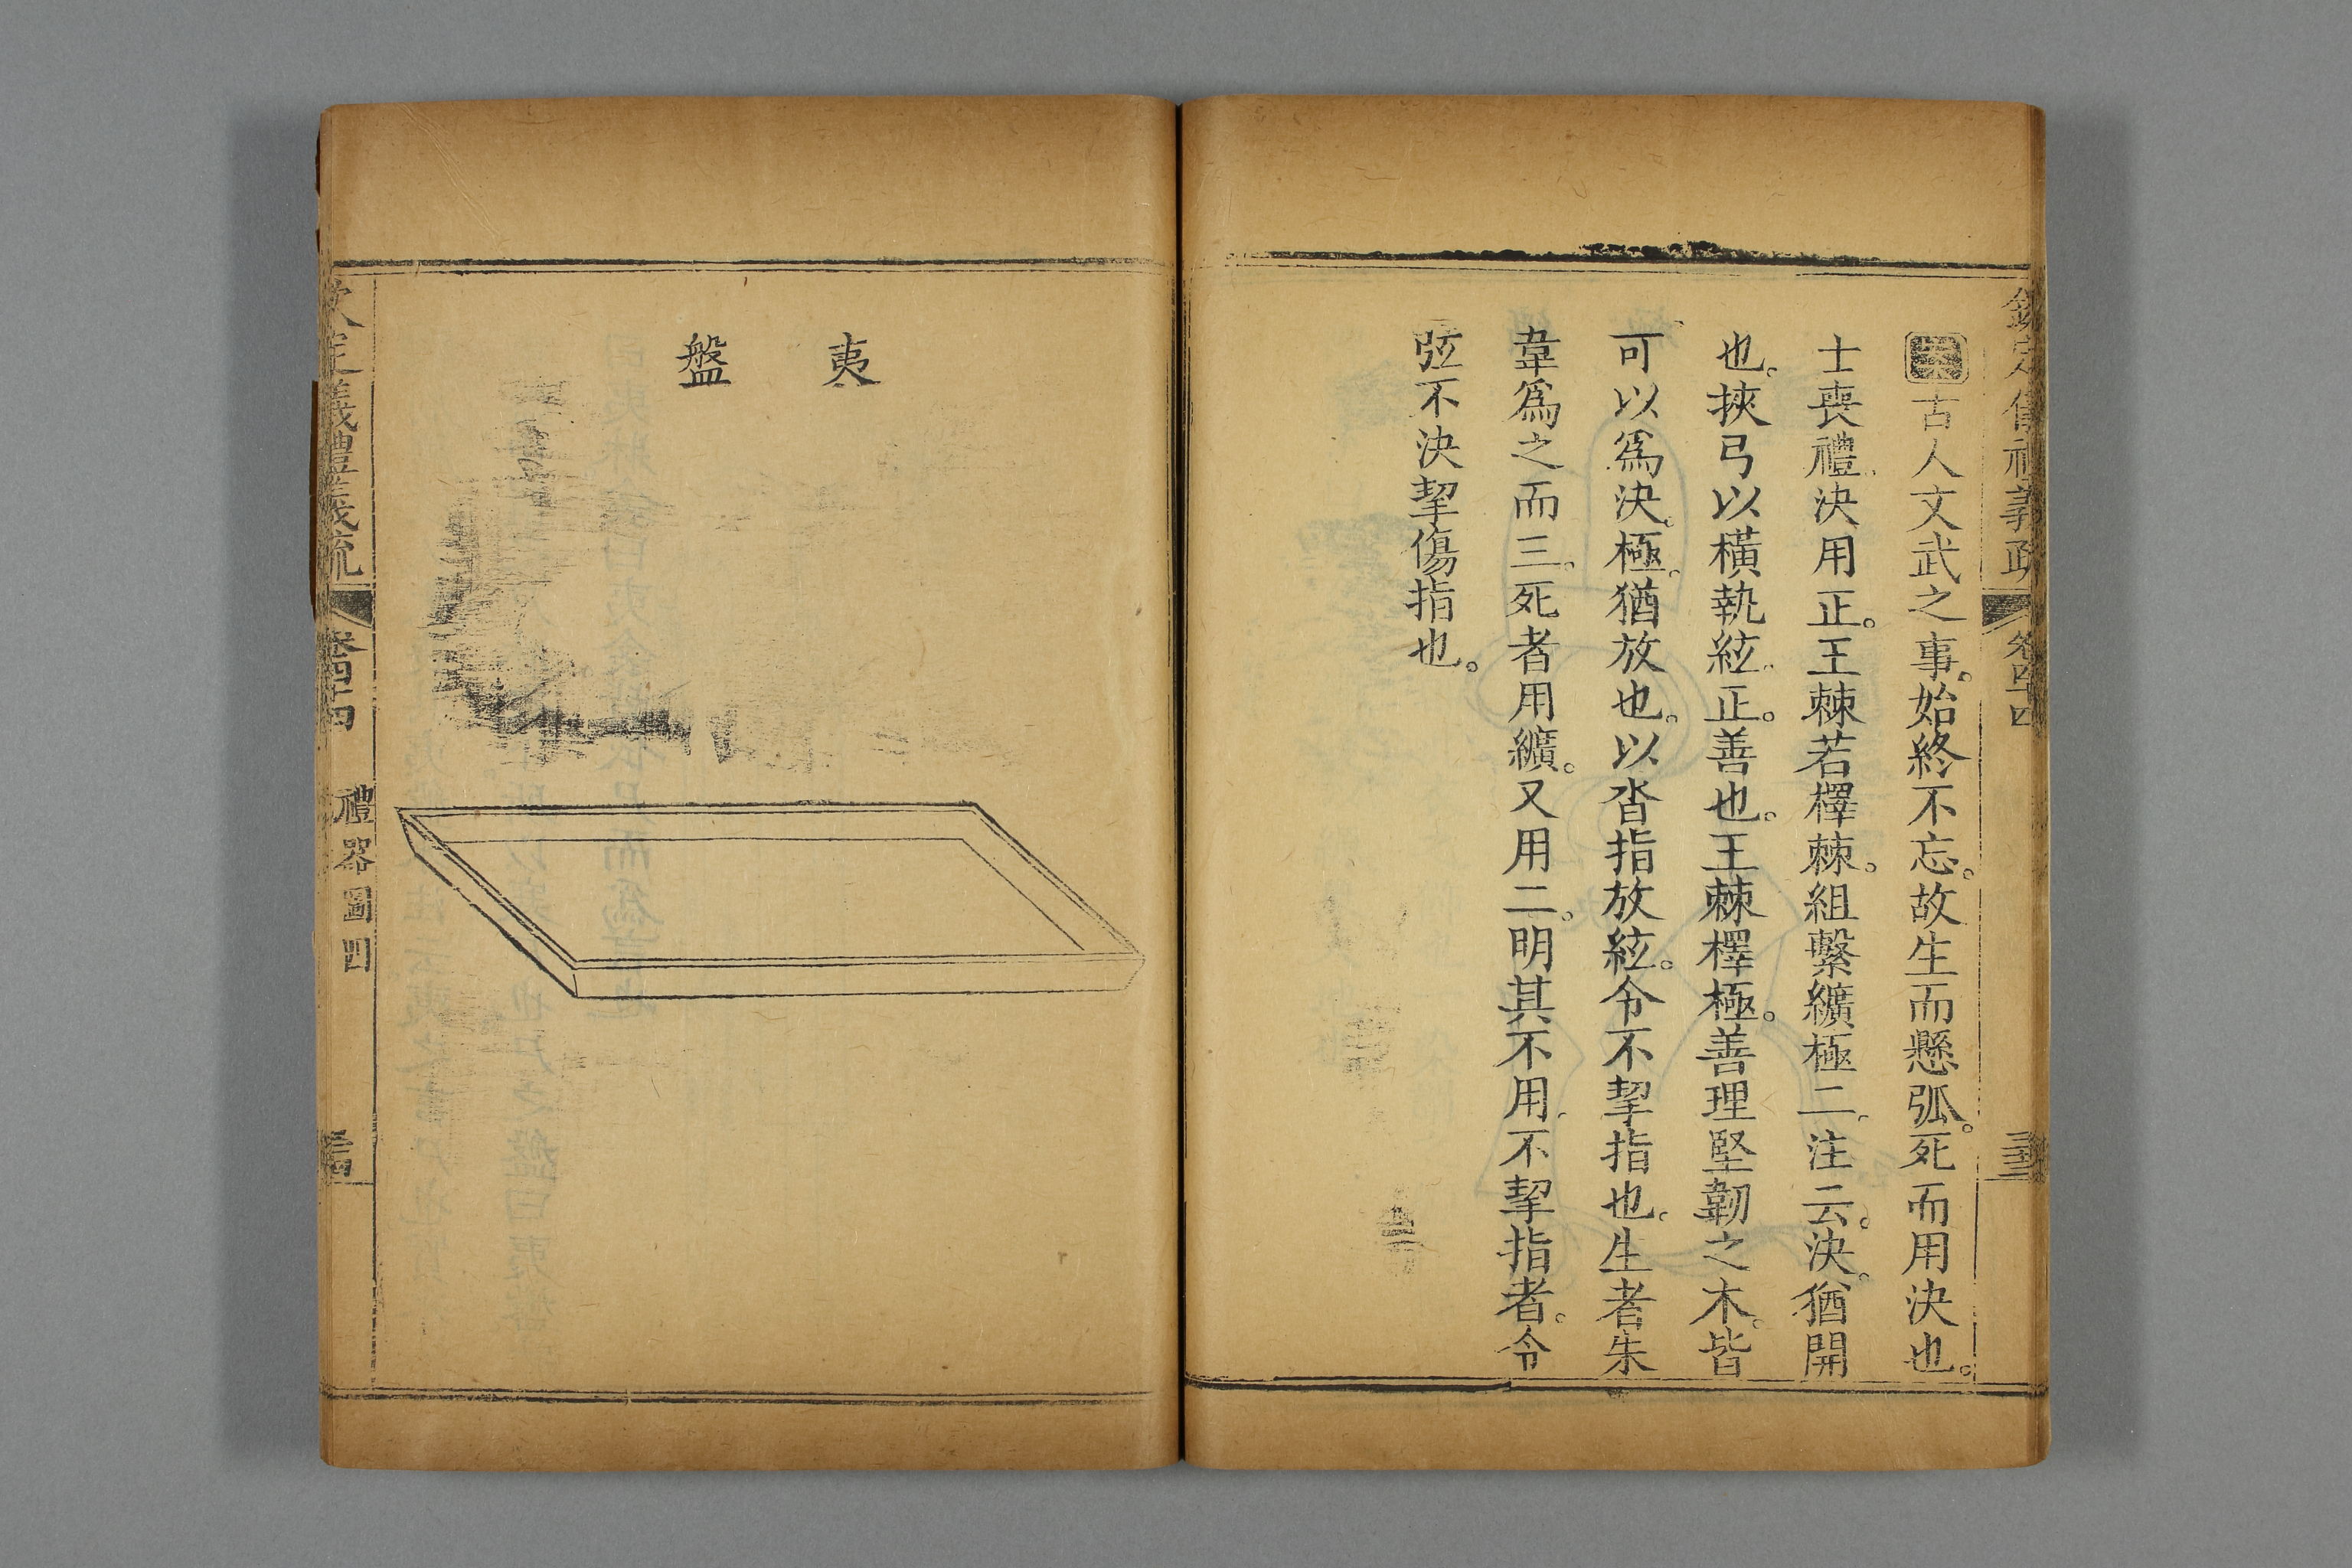 欽定儀禮義疏 卷四十四
古人文武之事。始終不忘。故生而懸弧。死而用決也。
士喪禮。決用正。王棘若檡棘。組繫纊極二。注云。決。猶開
也。挾弓以橫執絃。正。善也。王棘檡極。善理堅韌之木。皆
可以爲決。極。猶放也。以沓指放絃。令不挈指也。生者朱
韋爲之而三。死者用纊。又用二。明其不用。不挈指者。令
弦不決挈傷指也。
夷
盤
欽定儀禮義疏 卷四十四 禮器圖四